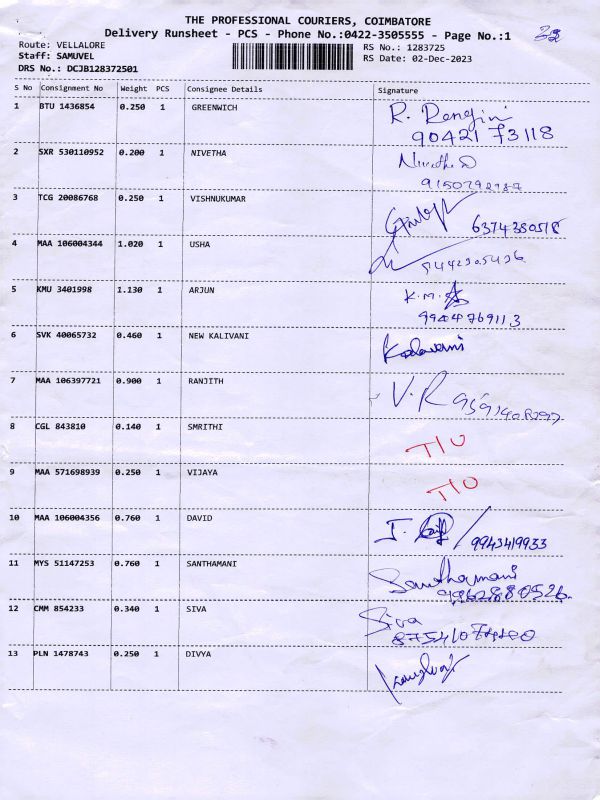 THE PROFESSIONAL COURIERS, COIMBATORE
Delivery Runsheet - PCS - Phone No.:0422-3505555 - Page No.:1
32
Route: VELLALORE
RS No.: 1283725
Staff: SAMUVEL
RS Date: 02-Dec-2023
DRS No.: DCJB128372501
S No Consignment No Weight PCS Consignee Details Signature
1 BTU 1436854 0.250 1 GREENWICH R. Rengini
90421 73118
2 SXR 530110952 0.200 1 NIVETHA Nivetha D
3 TCG 20086768 0.250 1 VISHNUKUMAR
6374380518
4 MAA 106004344 1.020 1 USHA
5 KMU 3401998 1.130 1 ARJUN K.M.
9944769113
6 SVK 40065732 0.460 1 NEW KALIVANI
7 MAA 106397721 0.900 1 RANJITH V.R
8 CGL 843810 0.140 1 SMRITHI T/U
9 MAA 571698939 0.250 1 VIJAYA T/U
10 MAA 106004356 0.760 1 DAVID J. /9943419933
11 MYS 51147253 0.760 1 SANTHAMANI Santhamani
9962880526
12 CMM 854233 0.340 1 SIVA Siva
13 PLN 1478743 0.250 1 DIVYA